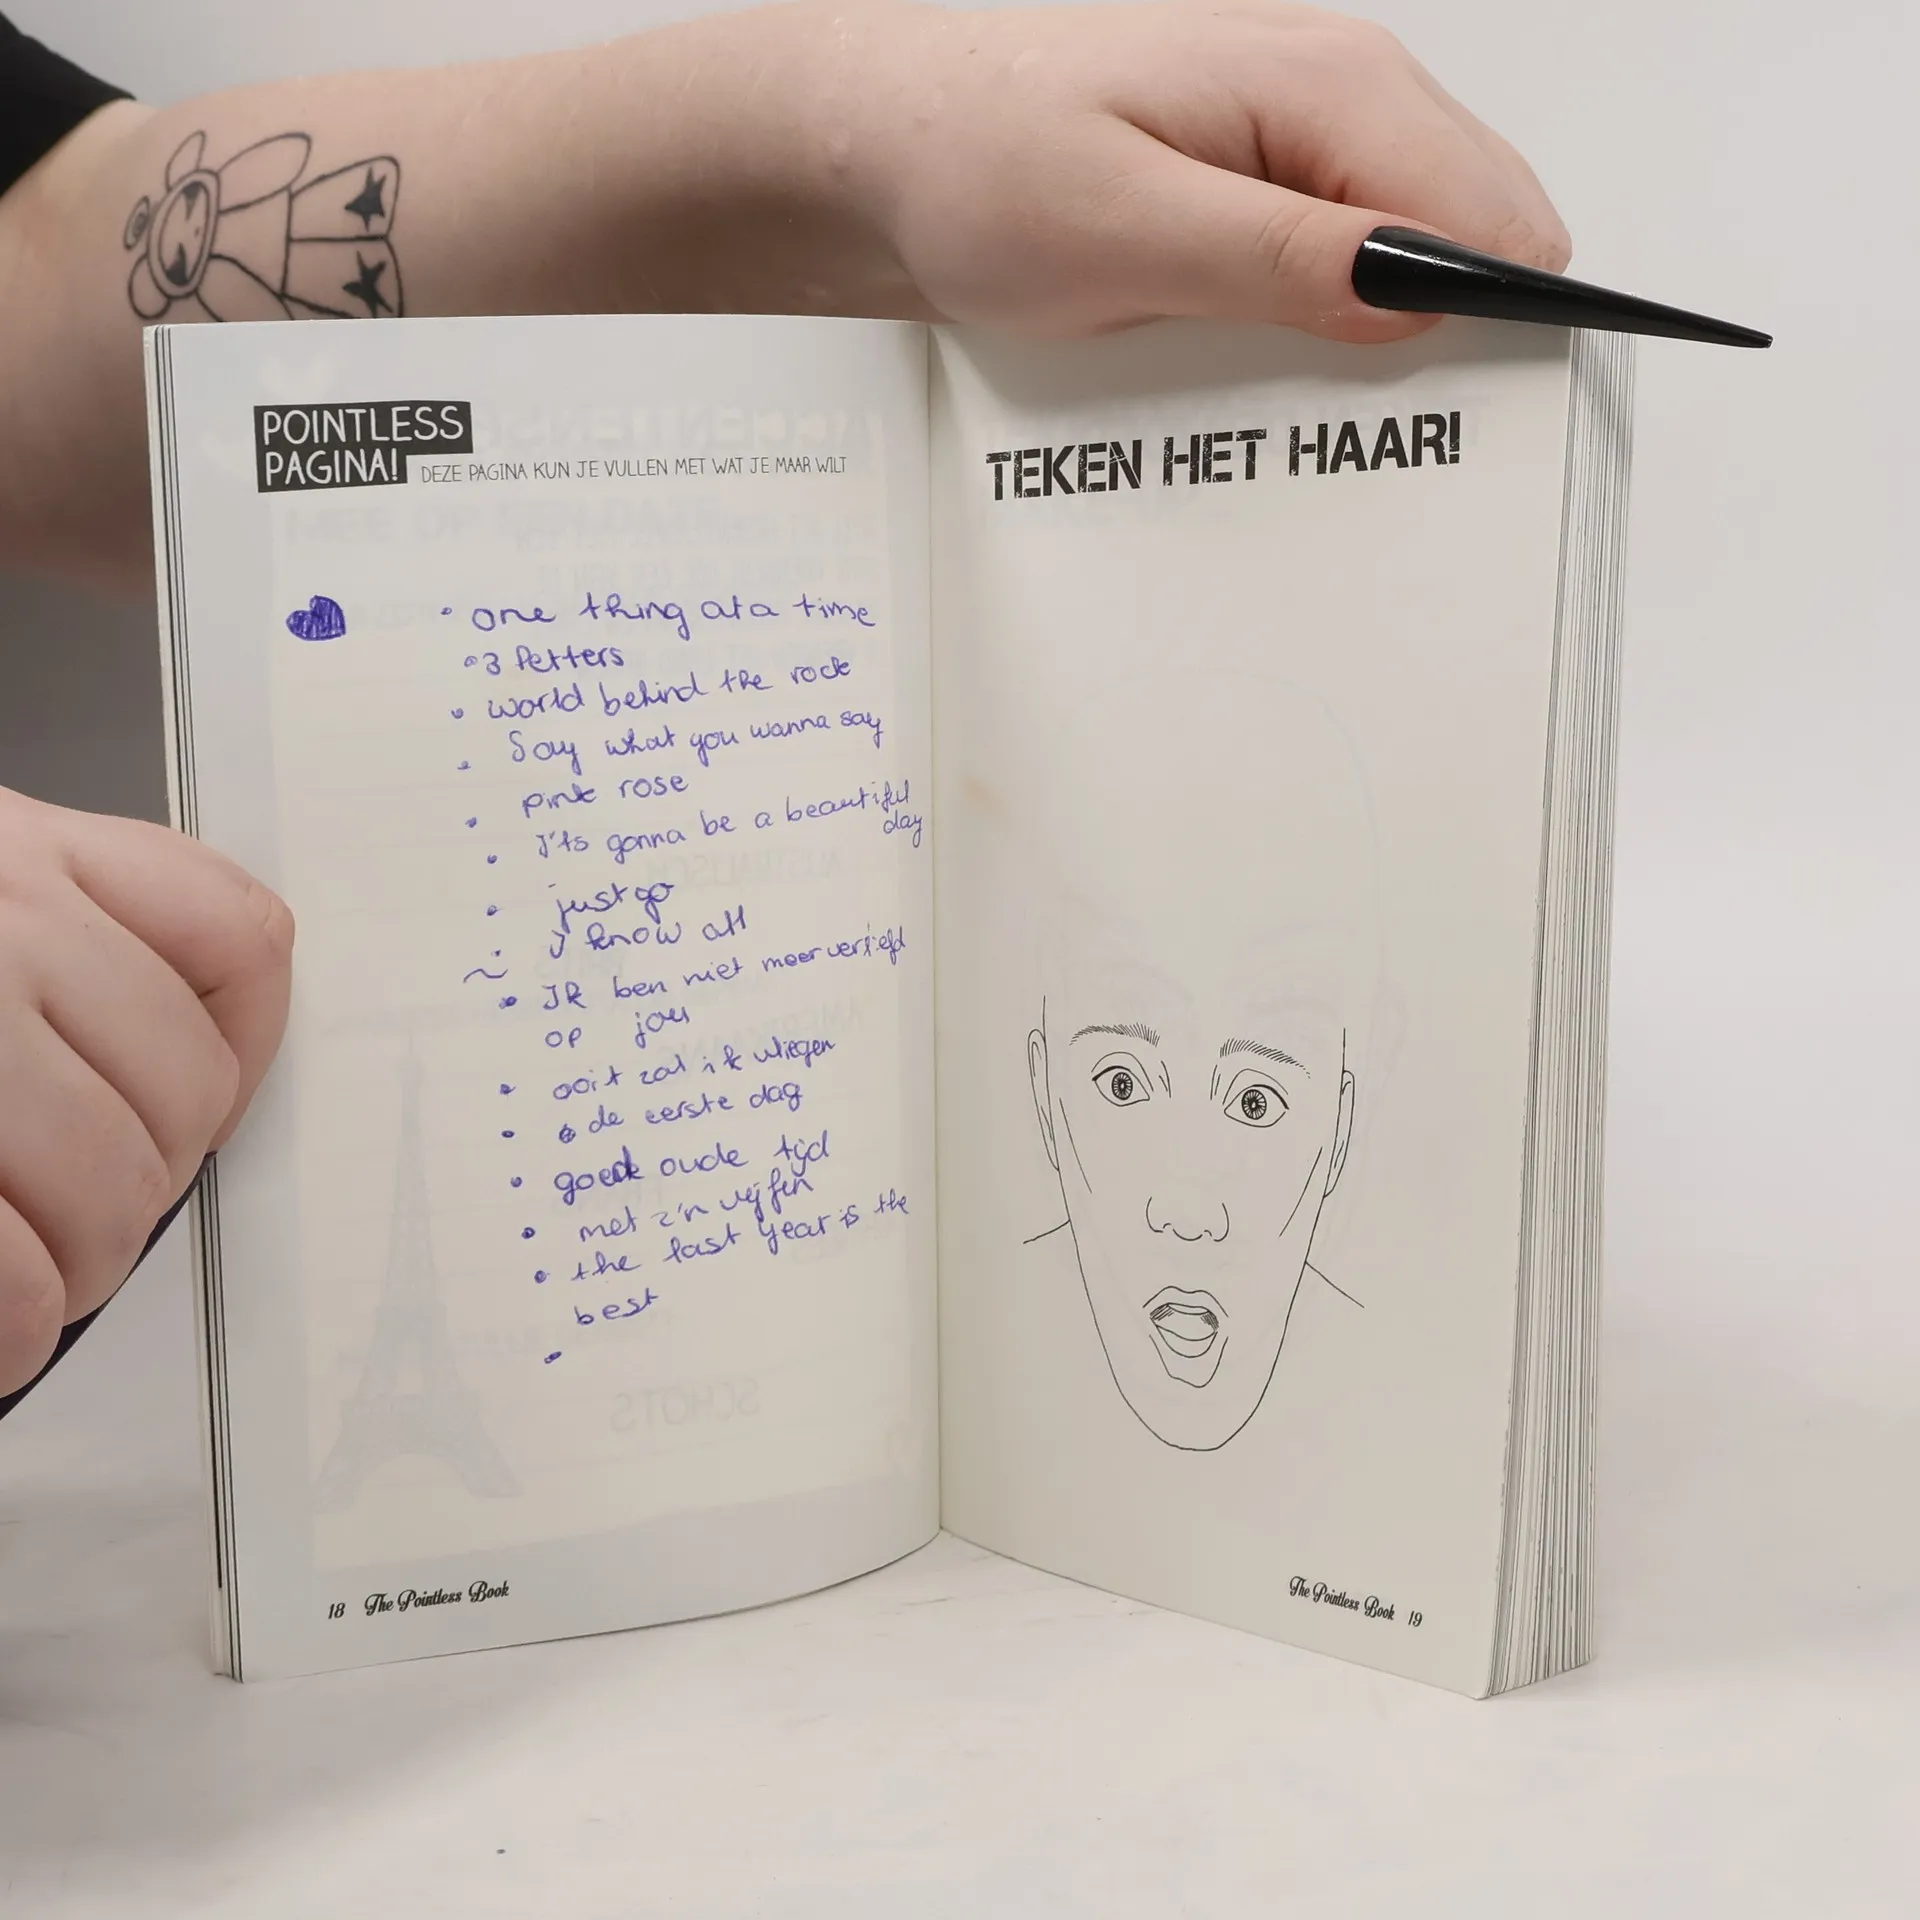 POINTLESS
PAGINA! DEZE PAGINA KUN JE VULLEN MET WAT JE MAAR WILT
• one thing at a time
• 3 letters
• world behind the rock
• Say what you wanna say
• pink rose
• I'ts gonna be a beautiful
day
• just go
• I know all
~ • Ik ben niet meer verliefd
op jou
• ooit zal ik vliegen
• de eerste dag
• goede oude tijd
• met z'n vijfen
• the last year is the
best
•
18 The Pointless Book
TEKEN HET HAAR!
The Pointless Book 19